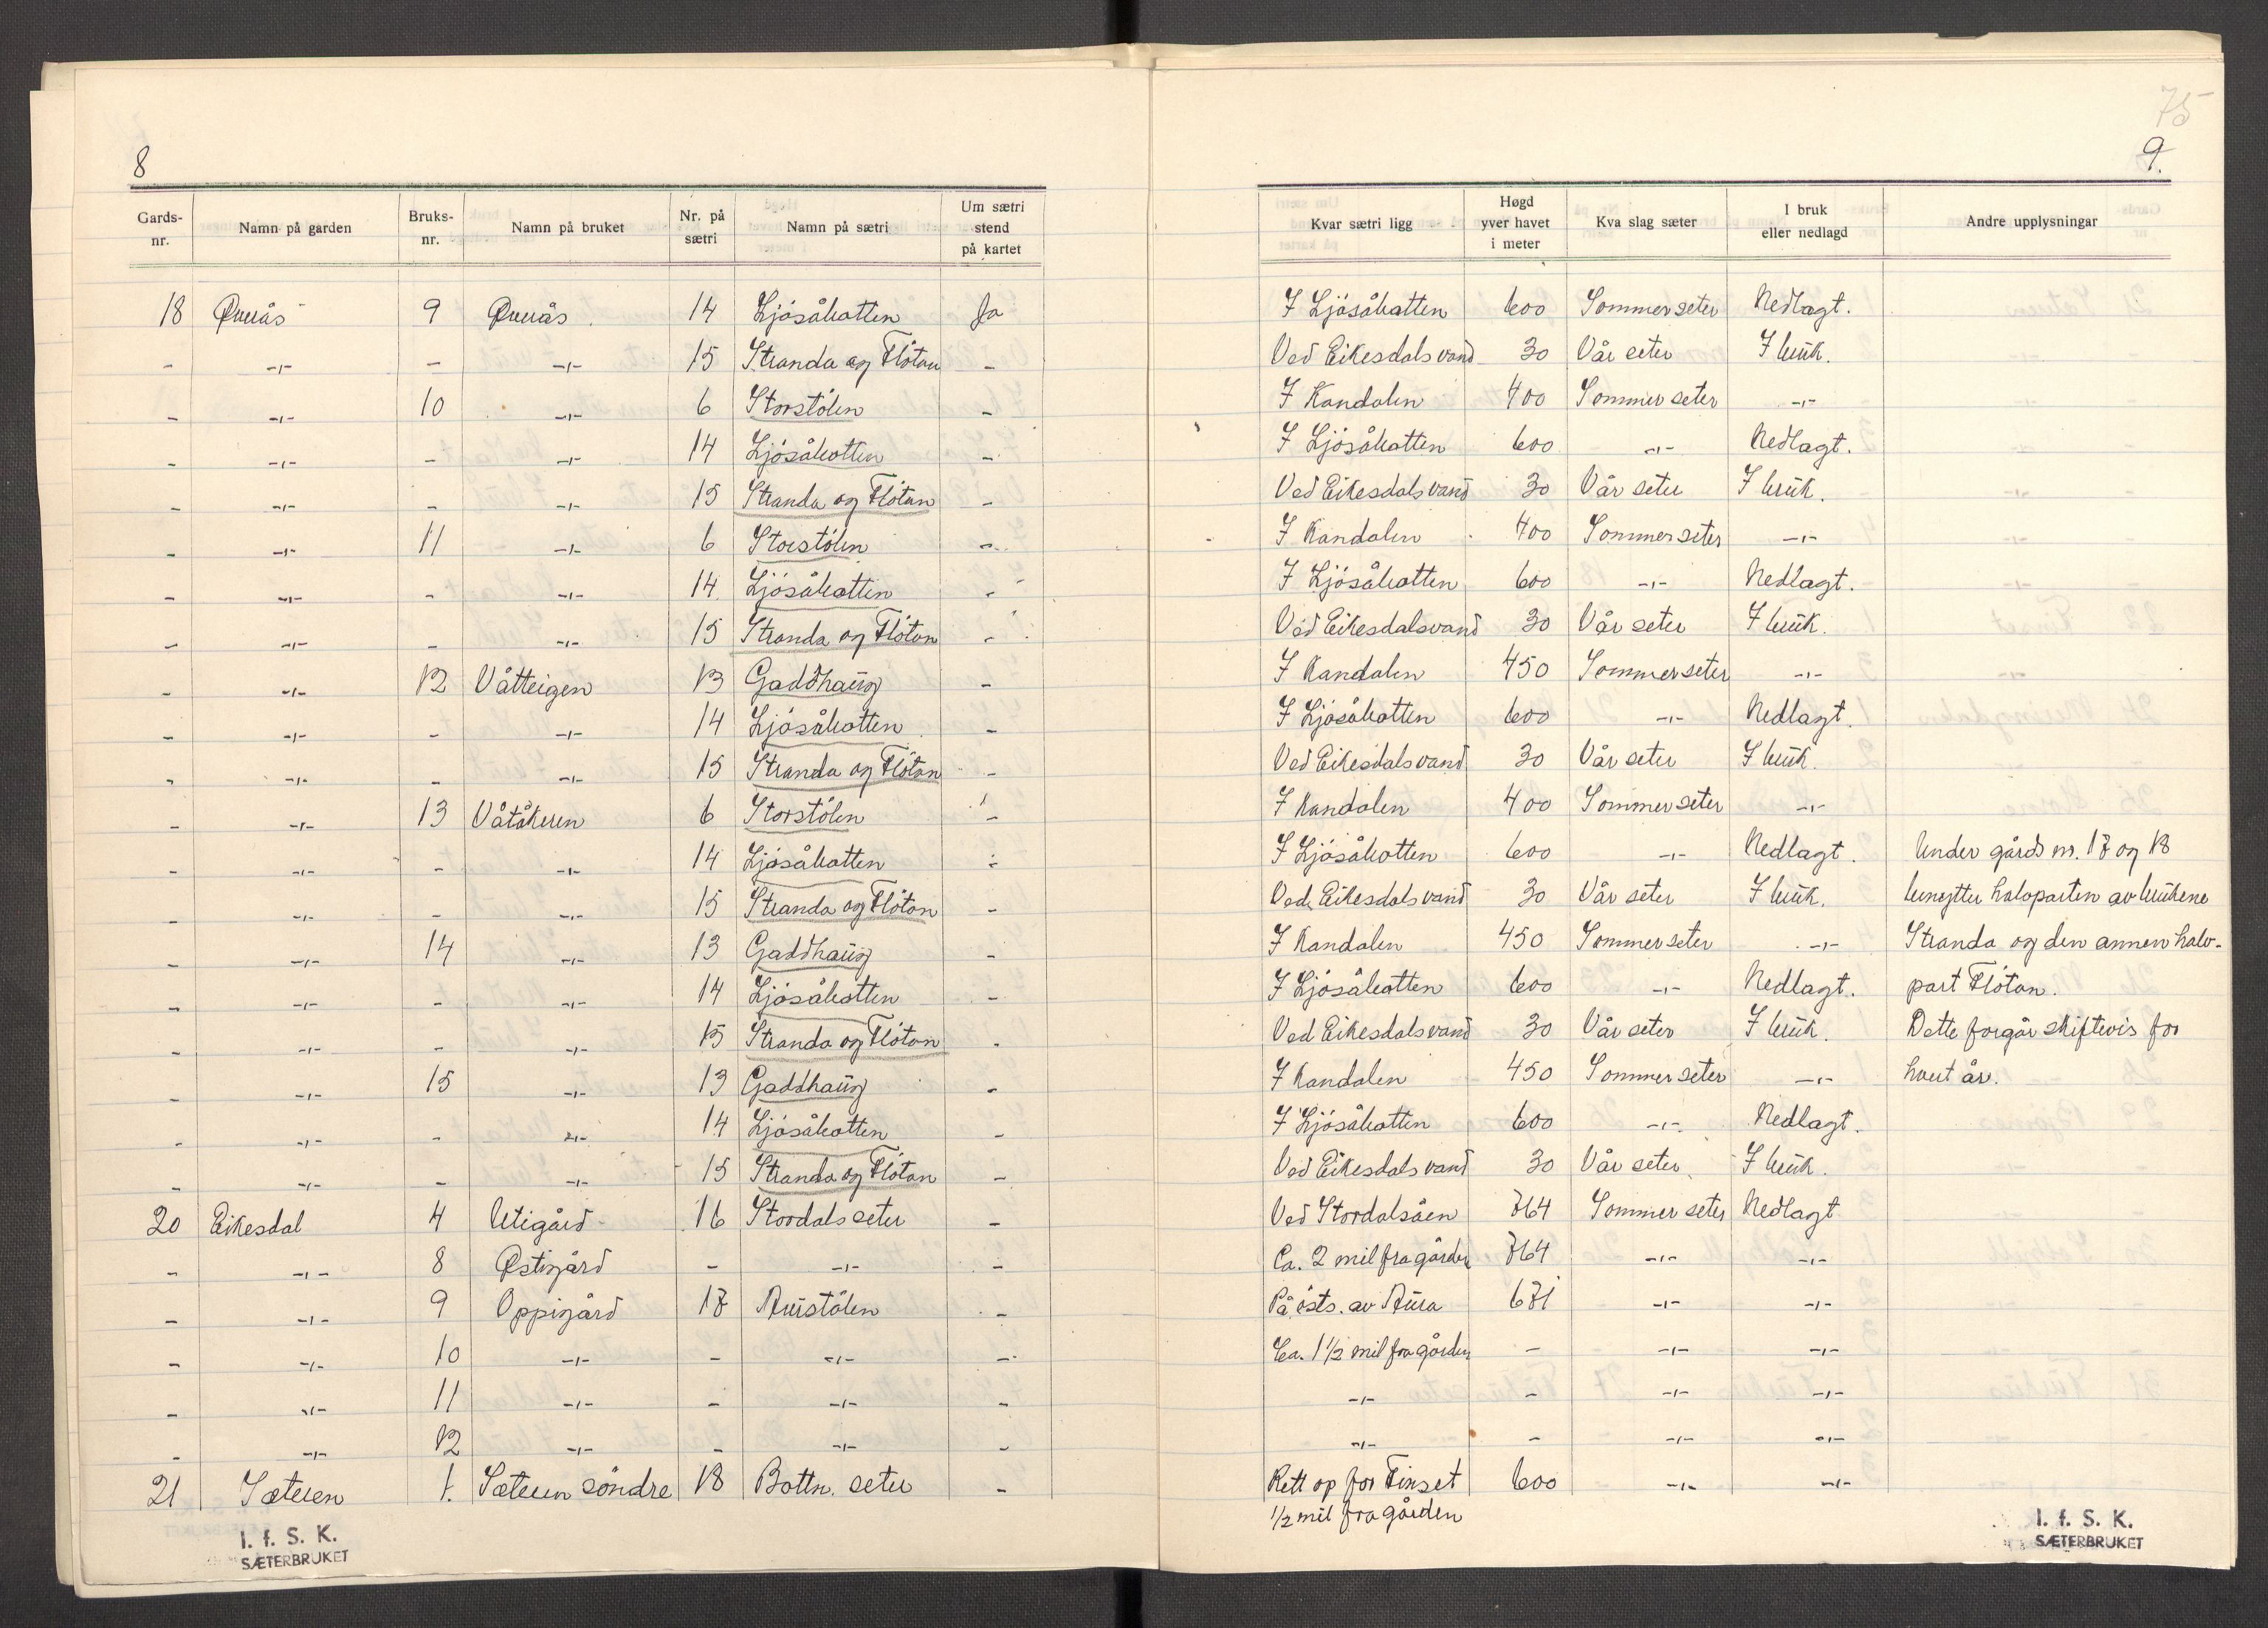 8
Gards-nr. | Namn på garden | Bruks-nr. | Namn på bruket | Nr. på sætri | Namn på sætri | Um sætri stend på kartet
18 | Øverås | 9 | Øverås | 14 | Ljósåbotten | Ja
- | -"- | - | -"- | 15 | Stranda og Flótan | -
- | -"- | 10 | -"- | 6 | Storstólen | -
- | -"- | - | -"- | 14 | Ljósåbotten | -
- | -"- | - | -"- | 15 | Stranda og Flótan | -
- | -"- | 11 | -"- | 6 | Storstólen | -
- | -"- | - | -"- | 14 | Ljósåbotten | -
- | -"- | - | -"- | 15 | Stranda og Flótan | -
- | -"- | 12 | Våtteigen | 13 | Gaddhaug | -
- | -"- | - | -"- | 14 | Ljósåbotten | -
- | -"- | - | -"- | 15 | Stranda og Flótan | -
- | -"- | 13 | Våtåkeren | 6 | Storstólen | -
- | -"- | - | -"- | 14 | Ljósåbotten | -
- | -"- | - | -"- | 15 | Stranda og Flótan | -
- | -"- | 14 | -"- | 13 | Gaddhaug | -
- | -"- | - | -"- | 14 | Ljósåbotten | -
- | -"- | - | -"- | 15 | Stranda og Flótan | -
- | -"- | 15 | -"- | 13 | Gaddhaug | -
- | -"- | - | -"- | 14 | Ljósåbotten | -
- | -"- | - | -"- | 15 | Stranda og Flótan | -
20 | Eikesdal | 4 | Utigård | 16 | Stordalsseter | -
- | -"- | 8 | Østigård | - | -"- | -
- | -"- | 9 | Oppigård | 17 | Aurstólen | -
- | -"- | 10 | -"- | - | -"- | -
- | -"- | 11 | -"- | - | -"- | -
- | -"- | 12 | -"- | - | -"- | -
21 | Sæteren | 1. | Sæteren söndre | 18 | Bottn. seter | -
I. f. S. K.
SÆTERBRUKET
75
9.
Kvar sætri ligg | Høgd yver havet i meter | Kva slag sæter | I bruk eller nedlagd | Andre upplysningar
I Ljösåbotten | 600 | Sommerseter | Nedlagt.
Ved Eikesdalsvand | 30 | Vår seter | I bruk.
I Kandalen | 400 | Sommerseter | -"-
I Ljösåbotten | 600 | -"- | Nedlagt.
Ved Eikesdalsvand | 30 | Vår seter | I bruk.
I Kandalen | 400 | Sommerseter | -"-
I Ljösåbotten | 600 | -"- | Nedlagt.
Ved Eikesdalsvand | 30 | Vår seter | I bruk.
I Kandalen | 450 | Sommerseter | -"-
I Ljösåbotten | 600 | -"- | Nedlagt.
Ved Eikesdalsvand | 30 | Vår seter | I bruk.
I Kandalen | 400 | Sommerseter | -"-
I Ljösåbotten | 600 | -"- | Nedlagt. | Under gårds nr. 17 og 18
Ved Eikesdalsvand | 30 | Vår seter | I bruk. | benytter halvparten av brukene
I Kandalen | 450 | Sommerseter | -"- | Stranda og den annen halv-
I Ljösåbotten | 600 | -"- | Nedlagt. | part Flótan.
Ved Eikesdalsvand | 30 | Vår seter | I bruk. | Dette forgår skiftevis for
I Kandalen | 450 | Sommerseter | -"- | hvert år.
I Ljösåbotten | 600 | -"- | Nedlagt.
Ved Eikesdalsvand | 30 | Vår seter | I bruk.
Ved Stordalsåen | 764 | Sommerseter | Nedlagt
Ca. 2 mil fra gården | 764 | -"- | -"-
På østs. av Aura | 671 | -"- | -"-
Ca. 1 1/2 mil fra gården | - | -"- | -"-
-"- | - | -"- | -"-
-"- | - | -"- | -"-
Rett op for Finset | 600 | -"- | -"-
1/2 mil fra gården
I. f. S. K.
SÆTERBRUKET